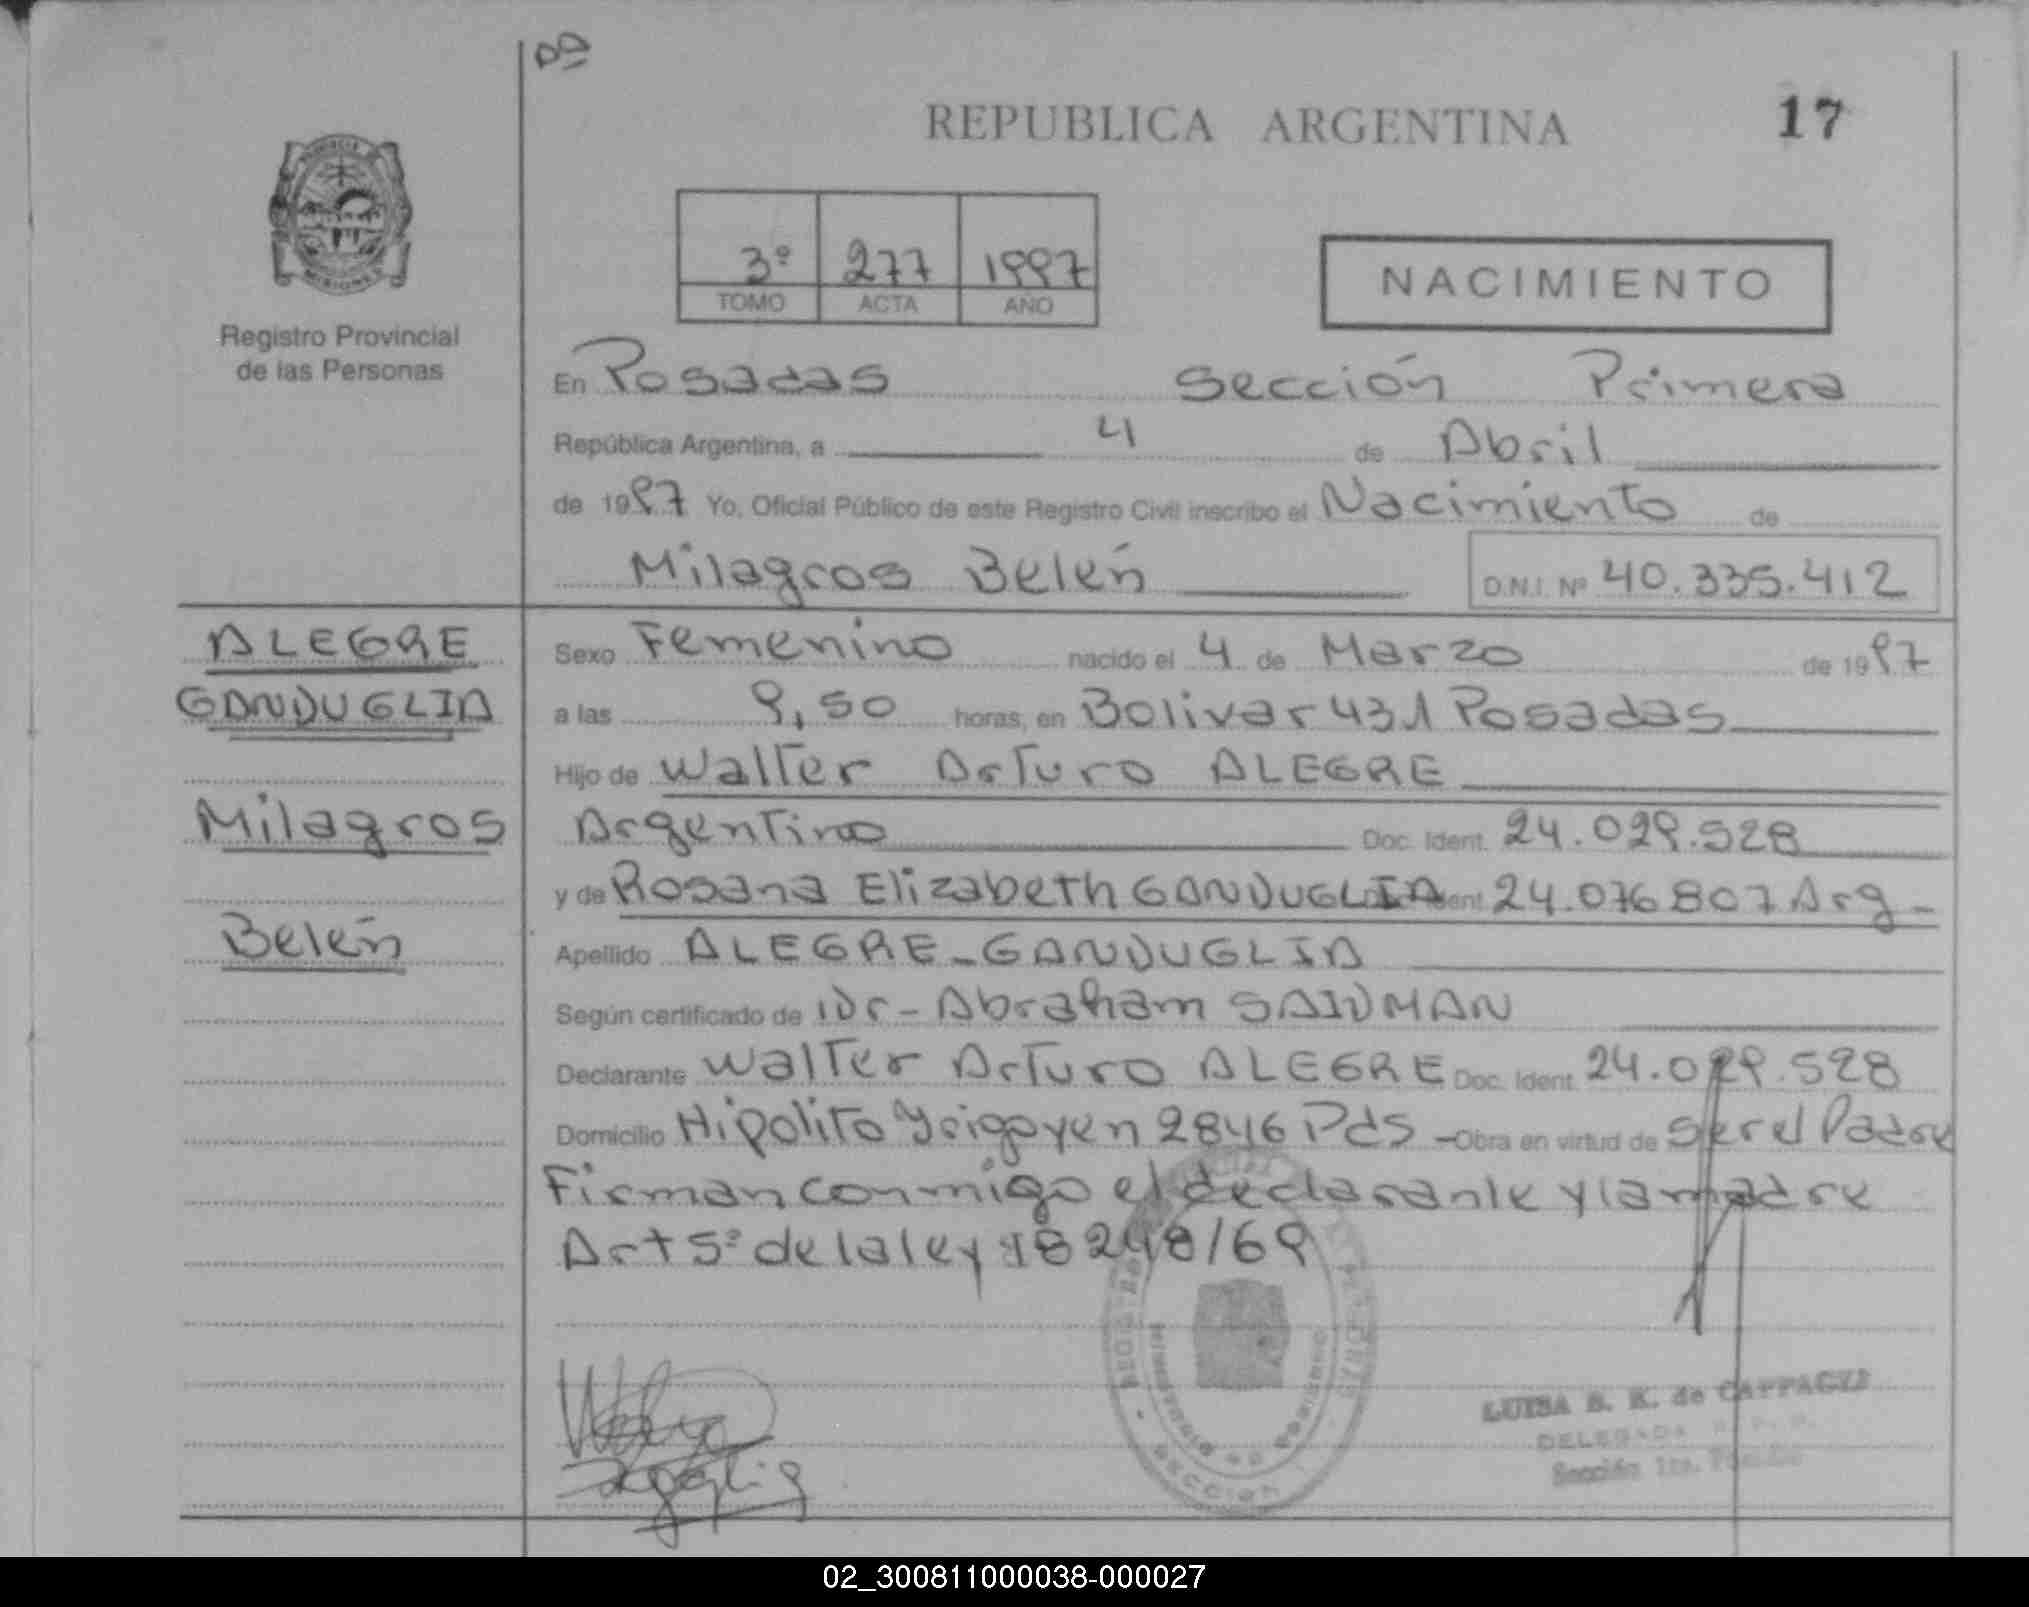 REPUBLICA ARGENTINA
17
3º 277 1997
TOMO ACTA AÑO
NACIMIENTO
Registro Provincial
de las Personas
En Posadas Sección Primera
República Argentina, a 4 de Abril
de 1997 Yo, Oficial Público de este Registro Civil inscribo el Nacimiento de
Milagros Belén D.N.I. Nº 40.335.412
ALEGRE
GANDUGLIA
Milagros
Belén
Sexo Femenino nacido el 4 de Marzo de 1997
a las 9,50 horas, en Bolivar 431 Posadas
Hijo de Walter Arturo ALEGRE
Argentino Doc. Ident. 24.029.528
y de Rosana Elizabeth GANDUGLIA Ident 24.076807 Arg-
Apellido ALEGRE-GANDUGLIA
Según certificado de Dr-Abraham SAIDMAN
Declarante Walter Arturo ALEGRE Doc. Ident. 24.029.528
Domicilio Hipolito Yrigoyen 2846 Pds - Obra en virtud de ser el Padre
Firman conmigo el declarante y la madre
Art 5º de la ley 18248/69
LUISA S. K. de
DELEGADA
Sección 1ra.
SECCION
02_300811000038-000027